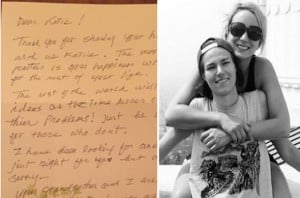 Dear Katie!
Thank you for sharing your he
with us Katie. The mos
matter is your happiness wit
for the rest of your life.
The rest of the world will
ideas as the time
their problems! just be
for those who don't.
I have been looking for
just right for you but
sorry.
and I are